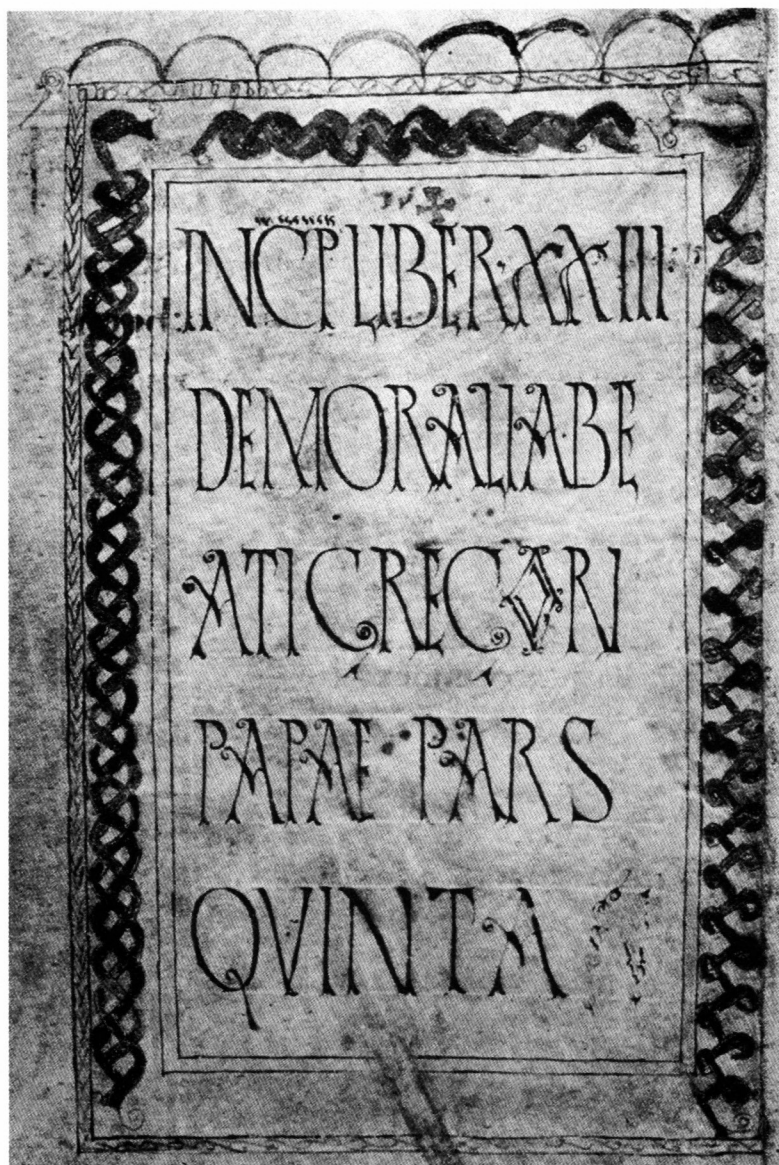 INCP LIBER·XXIII
DEMORALIABE
ATI GREGORI
PAPAE·PARS
QVINTA